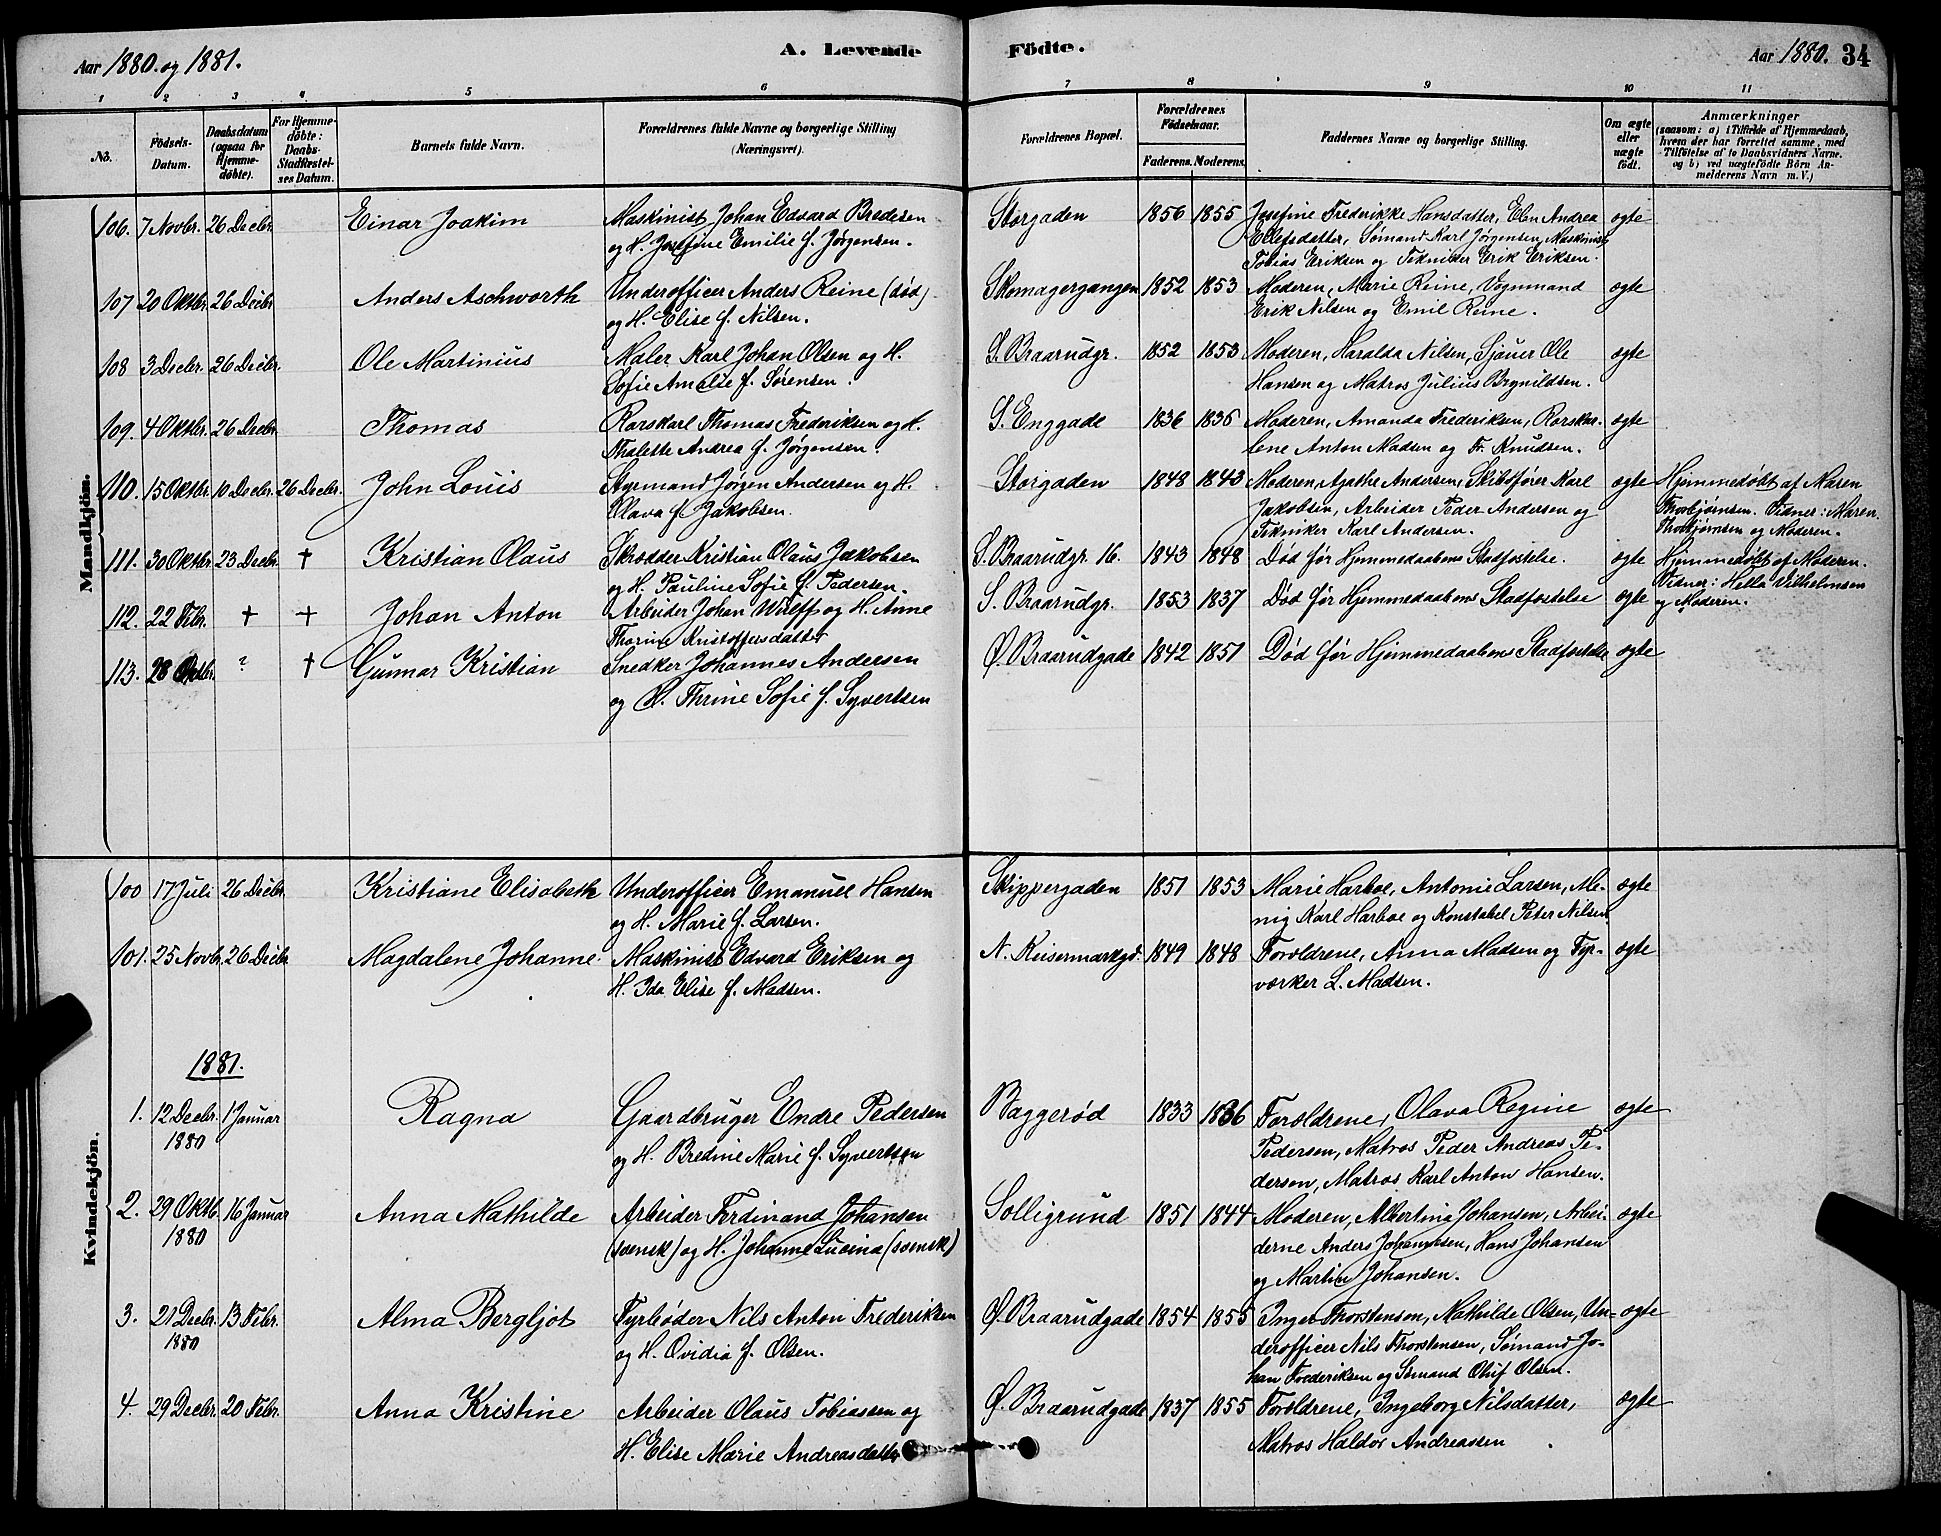 Aar 1880. og 1881.
A. Levende
Födte.
Aar 1880.
34
1 2 3 4 5 6 7 8 9 10 11
No.
Födsels-Datum.
Daabsdatum (ogsaa for Hjemme-döbte).
For Hjemme-döbte: Daabs-Stadfæstel-ses Datum.
Barnets fulde Navn.
Forældrenes fulde Navne og borgerlige Stilling (Næringsvei).
Forældrenes Bopæl.
Forældrenes Födselsaar.
Faderens. Moderens.
Faddernes Navne og borgerlige Stilling.
Om ægte eller uægte födt.
Anmærkninger
(saasom: a) i Tilfælde af Hjemmedaab, hvem der har forrettet samme, med Tilföielse af to Daabsvidners Navne. og b) ved uægtefödte Börn Anmelderens Navn m. V.)
Mandkjön.
106. 7 Novbr. 26 Decbr. Einar Joakim Maskinist Johan Edvard Bredesen Storgaden 1856 1855 Josefine Frederikke Hansdatter, Elen Andrea ægte
og H. Josefine Emilie f. Jørgensen. Ellefsdatter, Sømand Karl Jørgensen, Maskinist
Tobias Eriksen og Tekniker Erik Eriksen.
107 20 Oktbr. 26 Decbr Anders Aschworth Underofficer Anders Reine (død) Skomagergangen 1852 1853 Moderen, Marie Reine, Vognmand ægte
og H. Elise f. Nilsen. Erik Nilsen og Emil Reine.
108 3 Decbr. 26 Decbr. Ole Martinius Maler Karl Johan Olsen og H. S. Braarudgr. 1852 1853 Moderen, Haralda Nilsen, Sjauer Ole ægte
Sofie Amalie f. Sørensen. Hansen og Matros Julius Brynildsen.
109. 4 Oktbr. 26 Decbr Thomas Rorskarl Thomas Frederiksen og H. S. Enggade 1836 1835 Moderen, Amanda Frederiksen, Rorskar- ægte
Thalette Andrea f. Jørgensen. lene Anton Madsen og Fr. Knudsen.
110. 15 Oktbr. 10 Decbr. 26 Decbr. John Louis Styrmand Jørgen Andersen og H. Storgaden 1848 1843 Moderen, Agathe Andersen, Skibsfører Karl ægte Hjemmedøbt af Maren
Olava f. Jakobsen. Jakobsen, Arbeider Peder Andersen og Thorbjørnsen. Vidner: Maren
Tekniker Karl Andersen. Thorbjørnsen og Moderen.
111. 30 Oktbr. 23 Decbr. † Kristian Olaus Skrædder Kristian Olaus Jakobsen S. Braarudgr. 16. 1843 1848 Død før Hjemmedaabens Stadfæstelse. ægte Hjemmedøbt af Moderen.
og H. Pauline Sofie f. Pedersen. Vidner: Helle Vilhelmsen
og Moderen.
112. 22 Febr. † † Johan Anton Arbeider Johan Wulff og H. Anne S. Braarudgr. 1853 1837 Død før Hjemmedaabens Stadfæstelse ægte
Thorine Kristoffersdatter
113. 28 Oktbr. ? † Gunnar Kristian Snedker Johannes Andersen Ø. Braarudgade 1842 1851 Død før Hjemmedaabens Stadfæstelse ægte
og H. Thrine Sofie f. Syvertsen
Kvindekjön.
100 17 Juli 26 Decbr. Kristiane Elisabeth Underofficer Emanuel Hansen Skippergaden 1851 1853 Marie Harboe, Antonie Larsen, Me- ægte
og H. Marie f. Larsen. nig Karl Harboe og Konstabel Peter Nilsen
101. 25 Novbr. 26 Decbr Magdalene Johanne. Maskinist Edvard Eriksen og N. Keisermarkgd. 1849 1848 Forældrene, Anna Madsen og Fyr- ægte
H. Ida Elise f. Madsen. værker L. Madsen.
1881.
1. 12 Decbr. 1 Januar Ragna Gaardbruger Endre Pedersen Baggerød 1833 1836 Forældrene, Olava Regine ægte
1880 og H. Bredine Marie f. Syvertsen Pedersen, Matros Peder Andreas Pe-
dersen, Matros Karl Anton Hansen.
2. 29 Oktb. 16 Januar Anna Mathilde Arbeider Ferdinand Johansen Solligrund 1851 1844 Moderen, Albertina Johansen, Arbei- ægte
1880 (svensk) og H. Johanne Lucina (svensk) derne Anders Johannesen, Hans Johansen
og Martin Johansen.
3. 21 Decbr. 13 Febr. Alma Bergljot Fyrbøder Nils Anton Frederiksen Ø. Braarudgade 1854 1855 Inger Thorstensen, Mathilde Olsen, Un- ægte
1880 og H. Ovidia f. Olsen. derofficer Nils Thorstensen, Sømand Jo-
han Frederiksen og Sømand Oluf Olsen.
4. 29 Decbr. 20 Febr. Anna Kristine Arbeider Olaus Tobiassen og Ø. Braarudgade 1837 1855 Forældrene, Ingeborg Nilsdatter, ægte
H. Elise Marie Andreasdatter Matros Haldor Andreassen